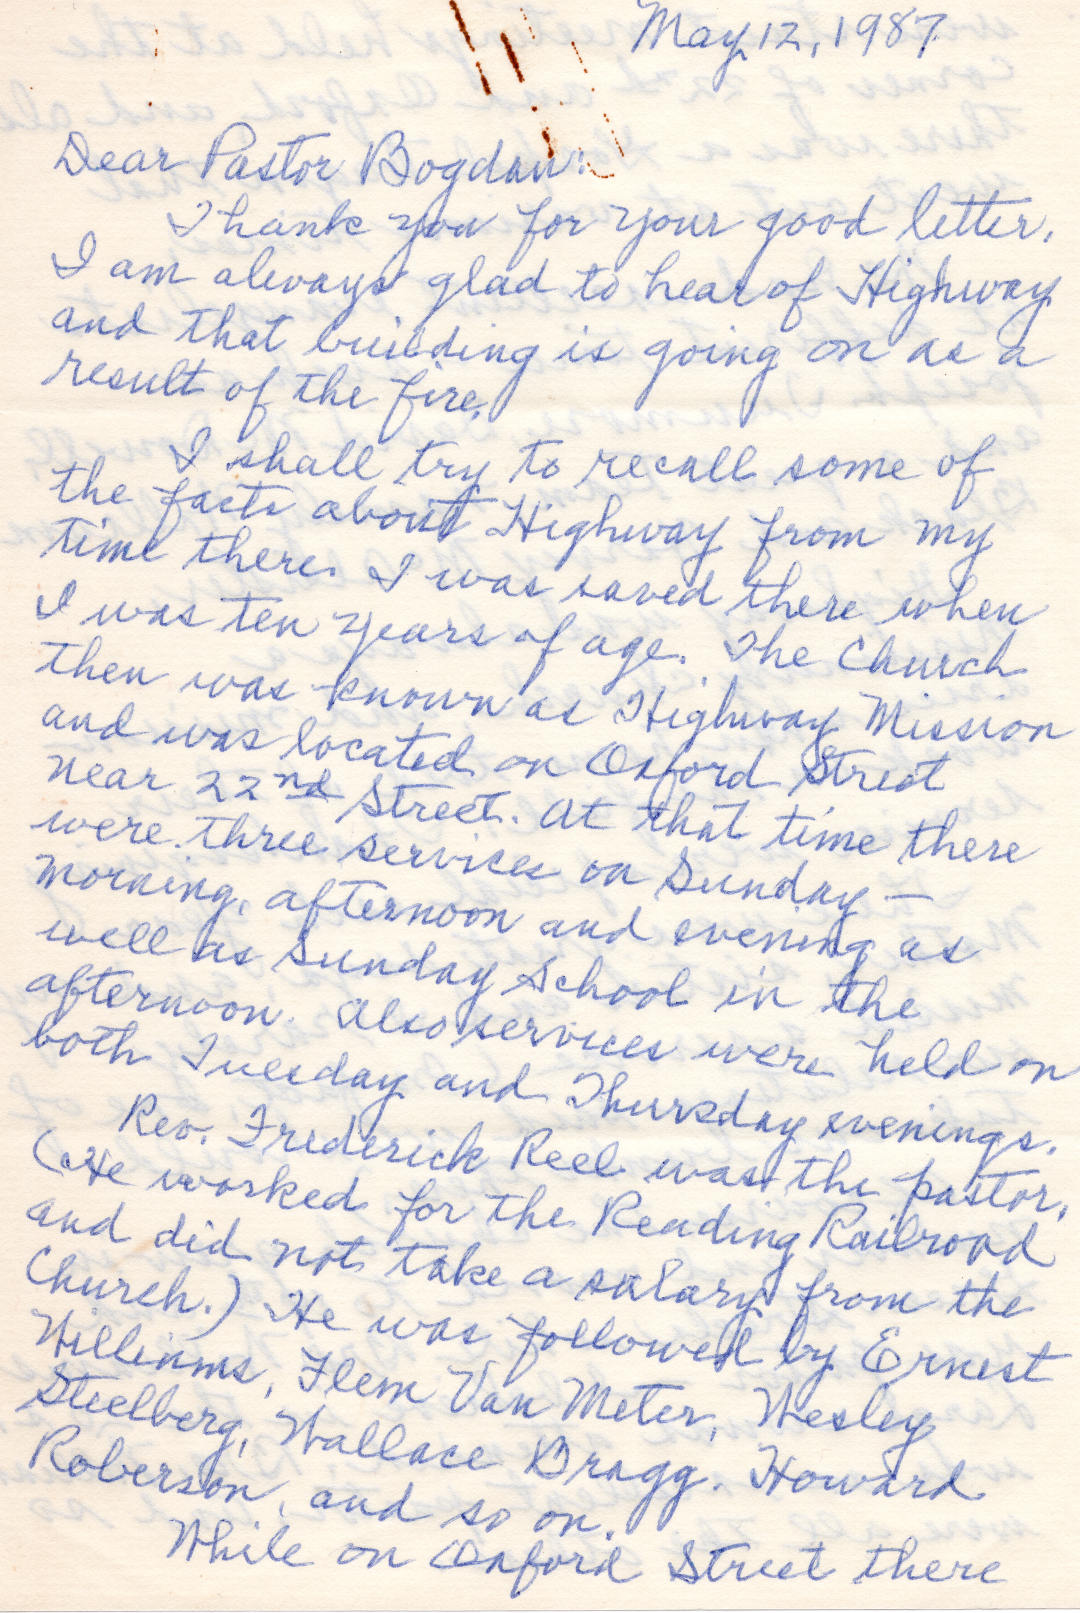 May 12, 1987
Dear Pastor Bogdan:
Thank you for your good letter.
I am always glad to hear of Highway
and that building is going on as a
result of the fire.
I shall try to recall some of
the facts about Highway from my
time there. I was saved there when
I was ten years of age. The Church
then was known as Highway Mission
and was located on Oxford Street
near 22nd Street. At that time there
were three services on Sunday —
morning, afternoon and evening as
well as Sunday School in the
afternoon. Also services were held on
both Tuesday and Thursday evenings.
Rev. Frederick Reel was the pastor.
(He worked for the Reading Railroad
and did not take a salary from the
Church.) He was followed by Ernest
Williams, Flem Van Meter, Wesley
Steelberg, Wallace Bragg. Howard
Roberson, and so on.
While on Oxford Street there